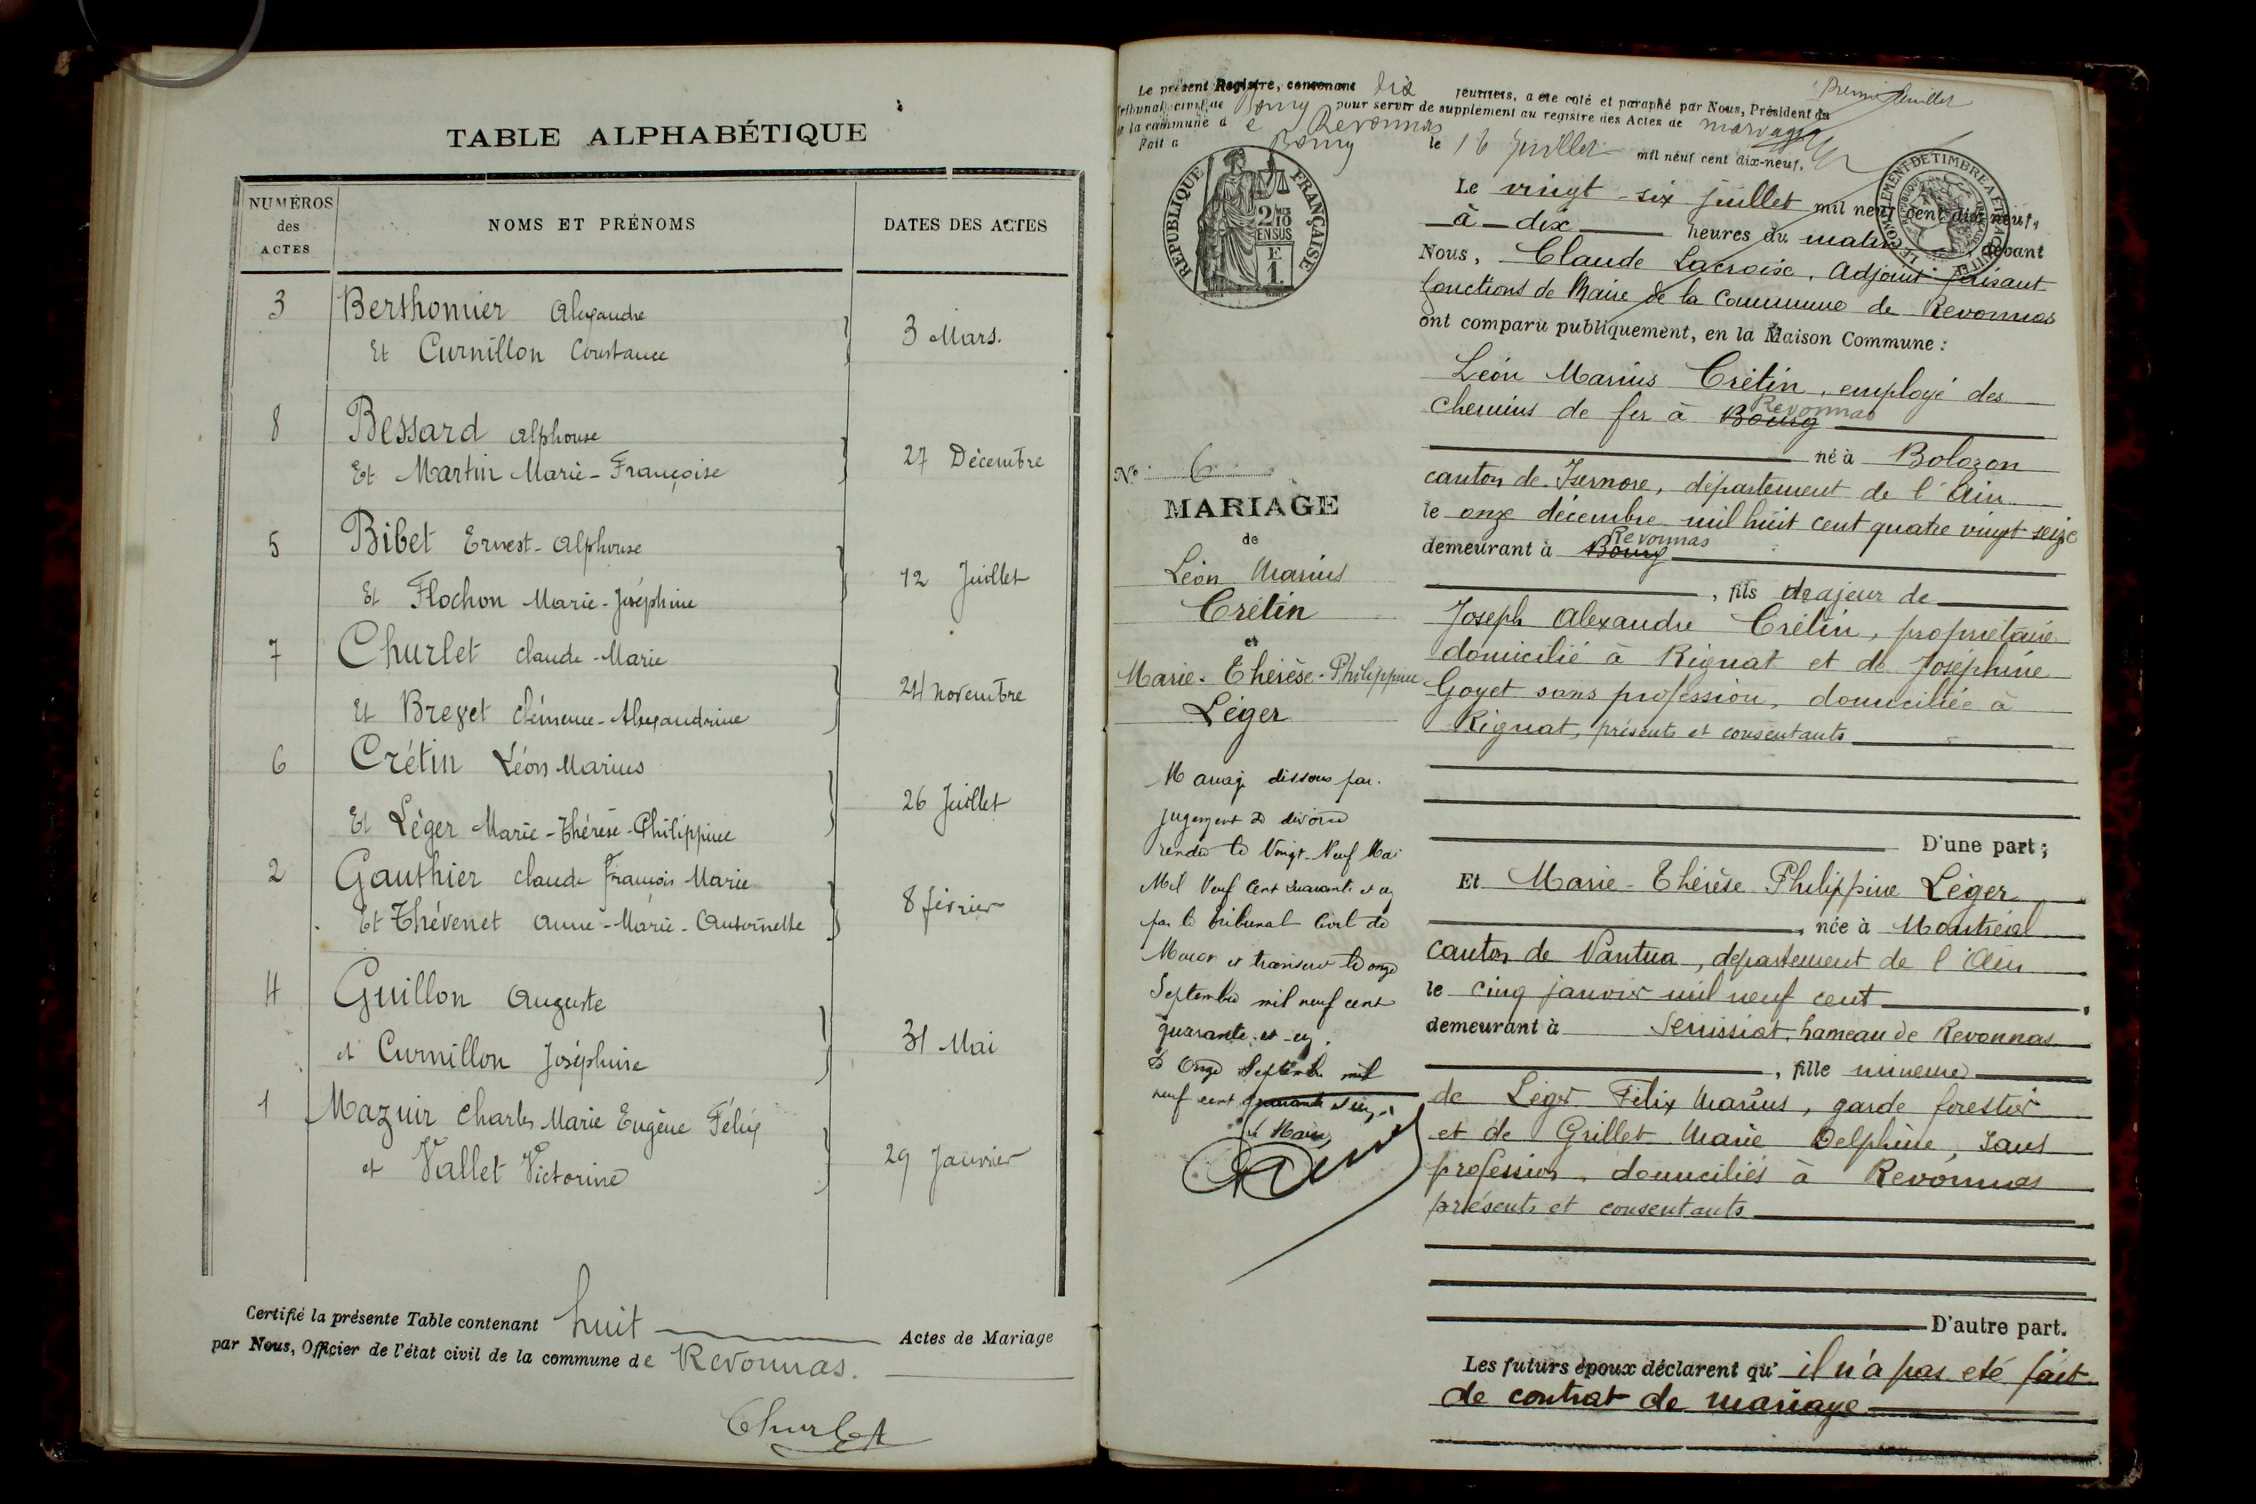 TABLE ALPHABÉTIQUE
NUMÉROS des ACTES
NOMS ET PRÉNOMS
DATES DES ACTES
3 Berthomier Alexandre
Et Curnillon Constance
3 Mars.
8 Bessard Alphonse
Et Martin Marie-Françoise
27 Décembre
5 Bibet Ernest-Alphonse
Et Flochon Marie-Joséphine
12 Juillet
7 Churlet Claude-Marie
Et Brevet Clémence-Alexandrine
24 novembre
6 Crétin Léon Marius
Et Léger Marie-Thérèse-Philippine
26 Juillet
2 Gauthier Claude François Marie
Et Thévenet Anne-Marie-Antoinette
8 février
4 Guillon Auguste
et Curnillon Joséphine
31 Mai
1 Mazuir Charles Marie Eugène Félix
et Vallet Victorine
29 Janvier
Certifié la présente Table contenant huit Actes de Mariage
par Nous, Officier de l'état civil de la commune de Revonnas.
Churlet
Premier feuillet
Le présent Registre, contenant dix feuillets, a été coté et paraphé par Nous, Président du
Tribunal civil de Bourg pour servir de supplément au registre des Actes de mariage
de la commune de Revonnas
Fait à Bourg le 16 Juillet mil neuf cent dix-neuf.
RÉPUBLIQUE FRANÇAISE
2/10 EN SUS
E
1.
Le vingt-six juillet mil neuf cent dix-neuf,
à dix heures du matin, devant
Nous, Claude Lacroix, Adjoint faisant
fonctions de Maire de la Commune de Revonnas
ont comparu publiquement, en la Maison Commune :
Léon Marius Crétin, employé des
chemins de fer à Bourg Revonnas
né à Bolozon
canton de Isernore, département de l'Ain
le onze décembre mil huit cent quatre vingt seize
demeurant à Bourg Revonnas
, fils majeur de
Joseph Alexandre Crétin, propriétaire
domicilié à Rignat et de Joséphine
Goyet sans profession, domiciliée à
Rignat, présents et consentants
D'une part ;
Et Marie-Thérèse Philippine Léger
, née à Montréal
canton de Nantua, département de l'Ain
le cinq janvier mil neuf cent,
demeurant à Senissiat, hameau de Revonnas
, fille mineure
de Léger Félix Marius, garde forestier
et de Grillet Marie Delphine, sans
profession, domiciliés à Revonnas
présents et consentants
D'autre part.
Les futurs époux déclarent qu'il n'a pas été fait
de contrat de mariage
No 6
MARIAGE
de
Léon Marius
Crétin
et
Marie-Thérèse-Philippine
Léger
Mariage dissous par
jugement de divorce
rendu le Vingt-Neuf Mai
Mil Neuf Cent quarante et un
par le tribunal Civil de
Macon et transcrit le onze
Septembre mil neuf cent
quarante-et-un.
Le Onze Septembre mil
neuf cent quarante et un
Le Maire